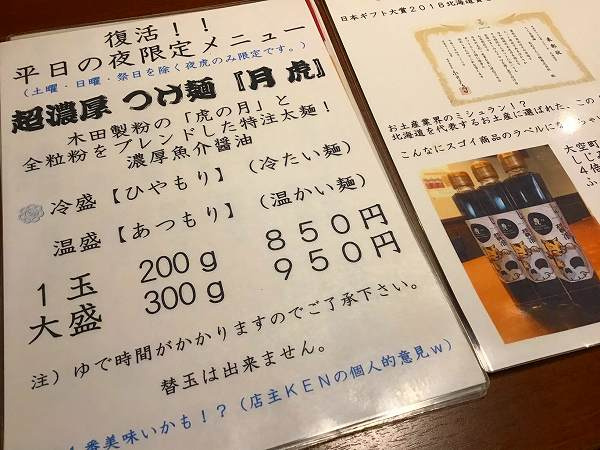 復活!!
平日の夜限定メニュー
(土曜・日曜・祭日を除く夜虎のみ限定です。)
超濃厚 つけ麺『月虎』
木田製粉の「虎の月」と
全粒粉をブレンドした特注太麺!
濃厚魚介醤油
冷盛【ひやもり】(冷たい麺)
温盛【あつもり】(温かい麺)
1玉 200g 850円
大盛 300g 950円
注)ゆで時間がかかりますのでご了承下さい。
替玉は出来ません。
番美味いかも!?(店主KENの個人的意見w)
日本ギフト大賞2018北海道賞
表彰状
お土産業界のミシュラン!?
北海道を代表するお土産に選ばれた、この
こんなにスゴイ商品のラベルに
大空町
しじみ
4倍
ふ